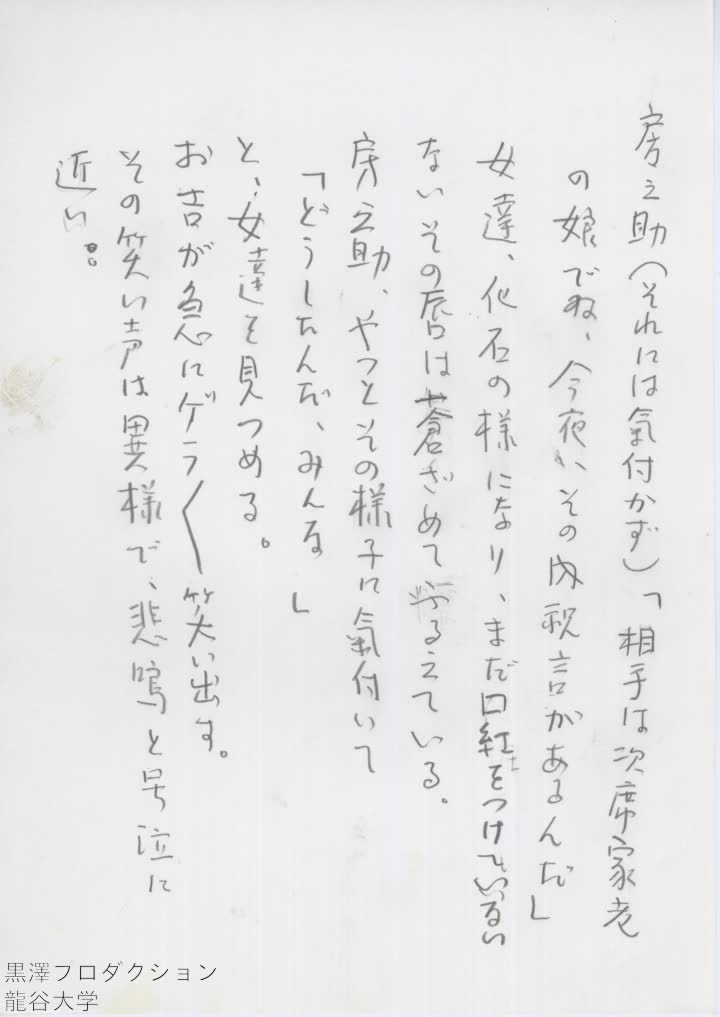 房之助(それには氣付かず)「相手は次席家老
の娘でね、今夜、その内祝言があるんだ」
女達、化石の様になり、まだ口紅をつけている
ないその唇は蒼ざめてふるえている。
房之助、やっとその様子に氣付いて
「どうしたんだ、みんな」
と、女達を見つめる。
お吉が急にゲラ〱笑い出す。
その笑い声は異様で、悲鳴と号泣に
近い。
黒澤フロダクション
龍谷大学